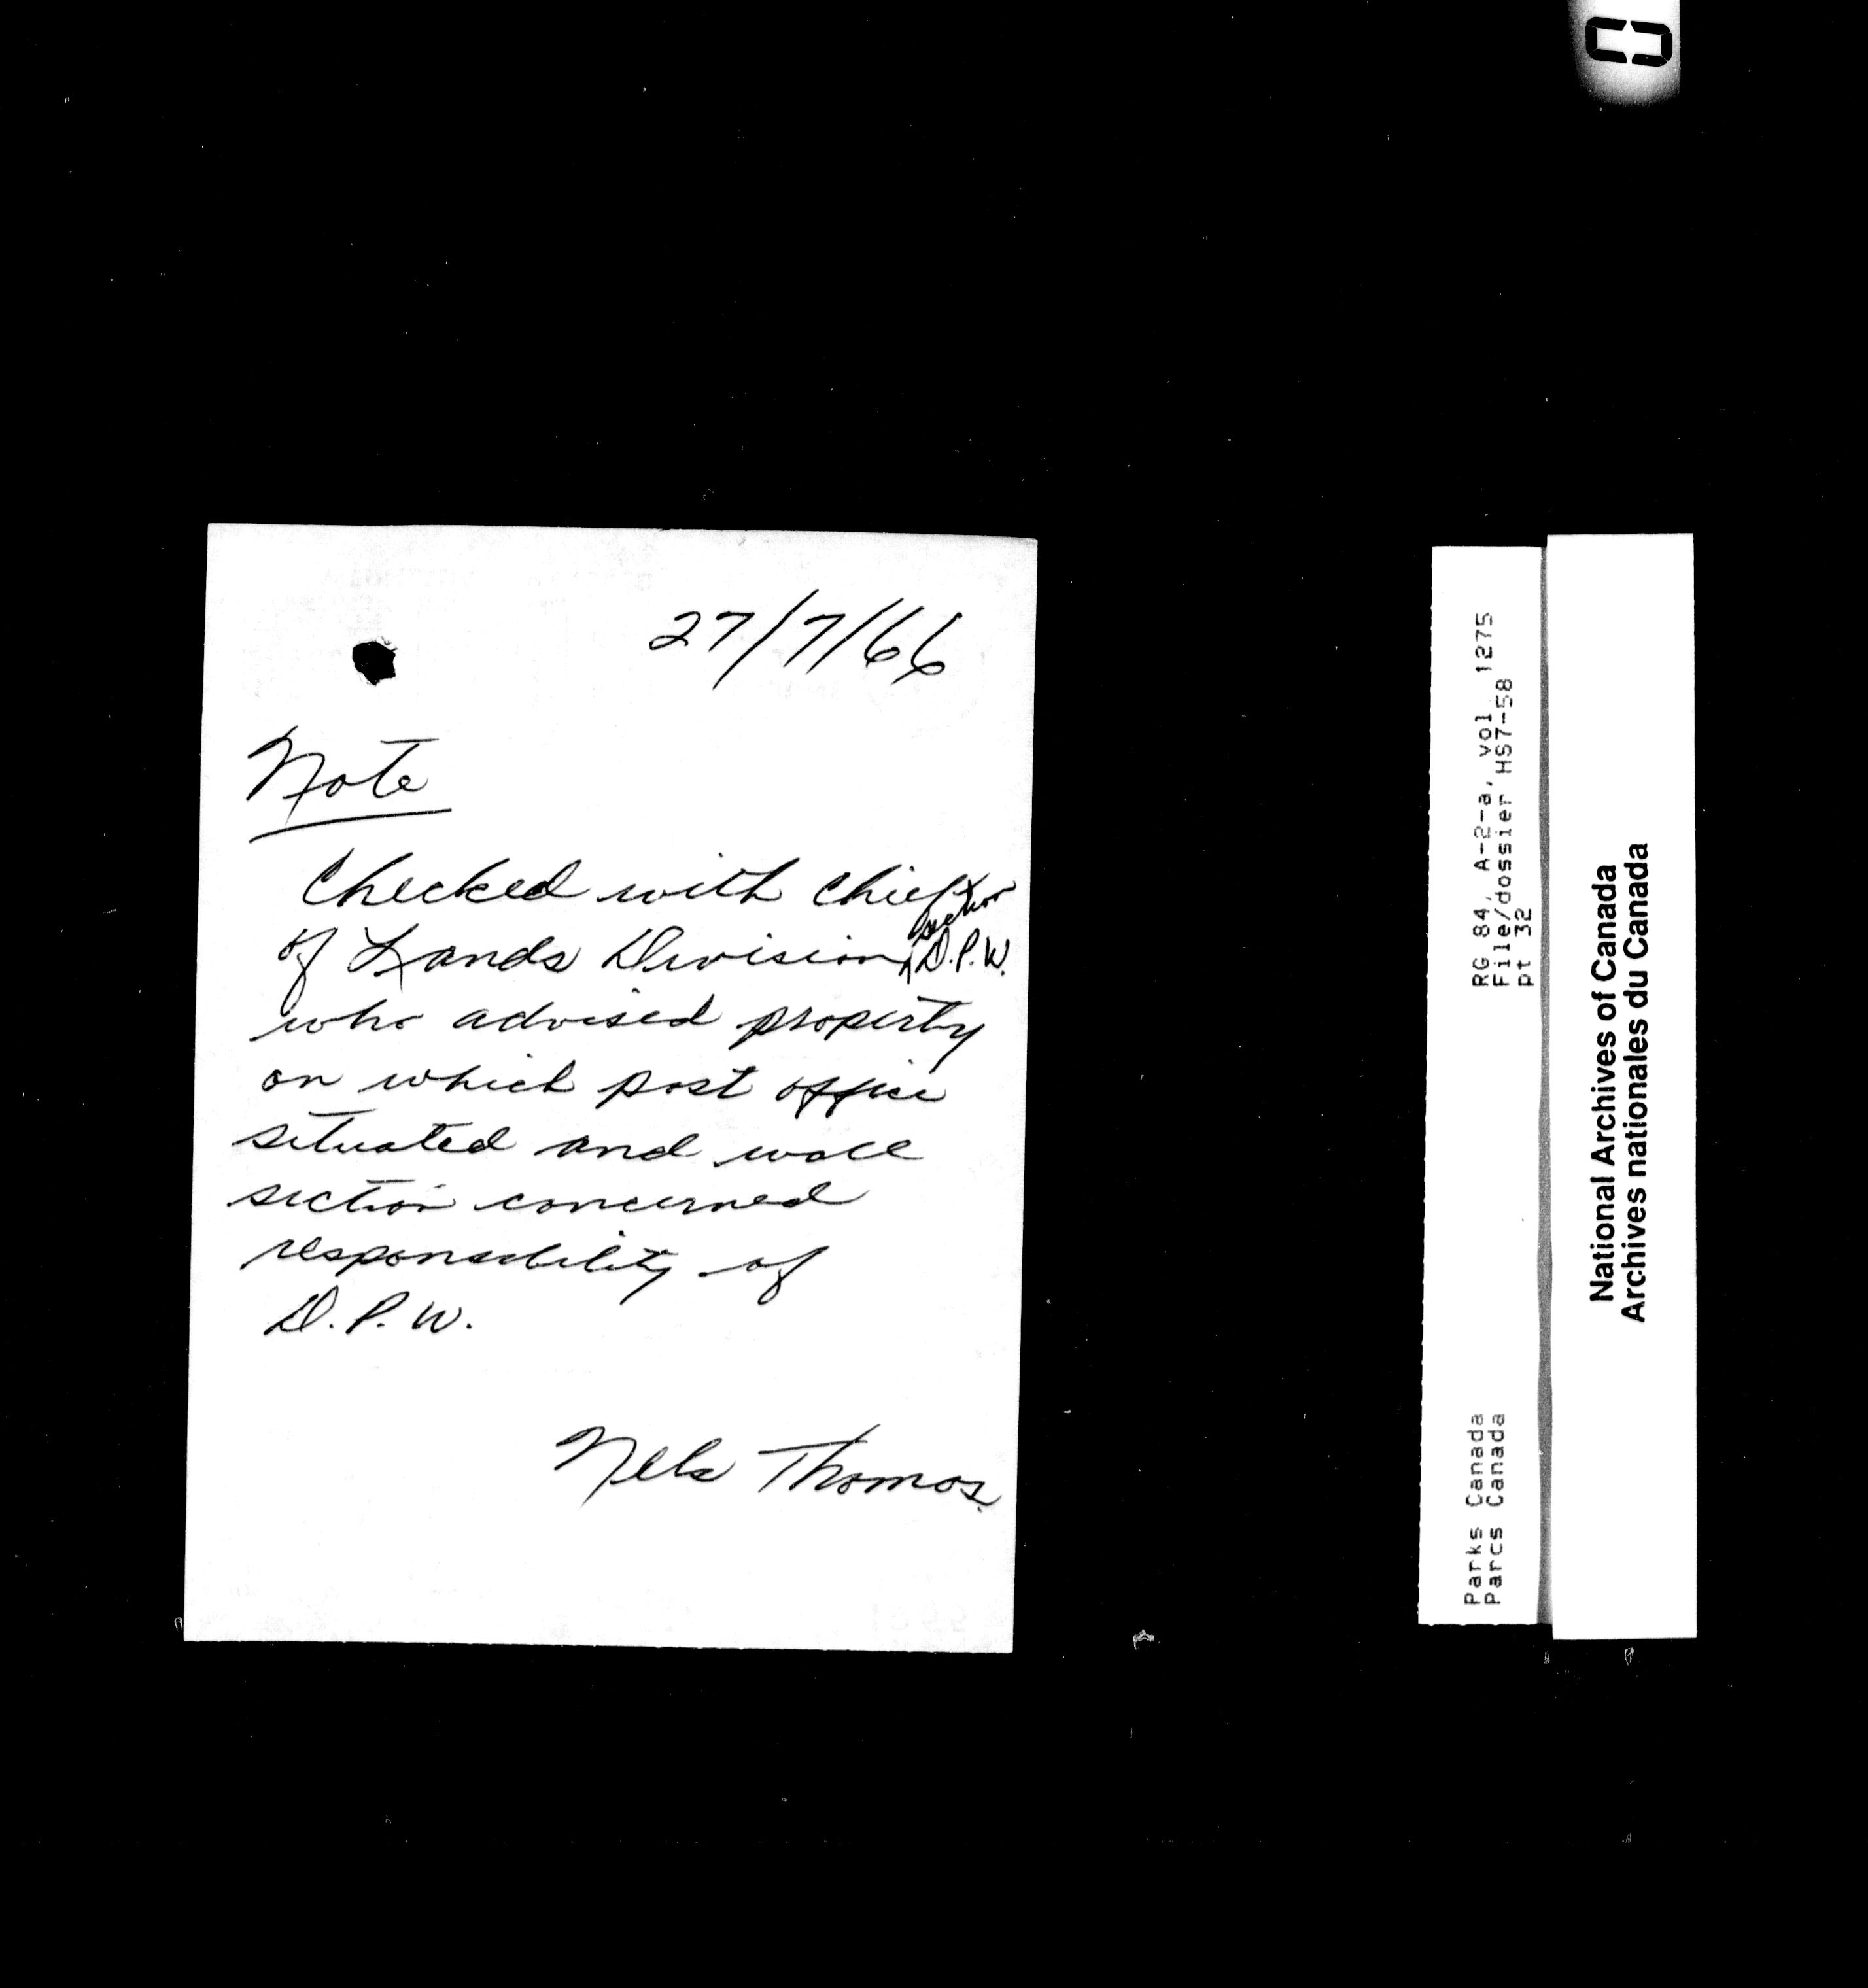 27/7/66
Note
Checked with chief
of Lands Division, D.P.W.
who advised property
on which post office
situated and wall
section concerned
responsibility of
D.P.W.
Nels Thomas
RG 84, A-2-a, vol 1275
File/dossier HS7-58
pt 32
Parks Canada
Parcs Canada
National Archives of Canada
Archives nationales du Canada